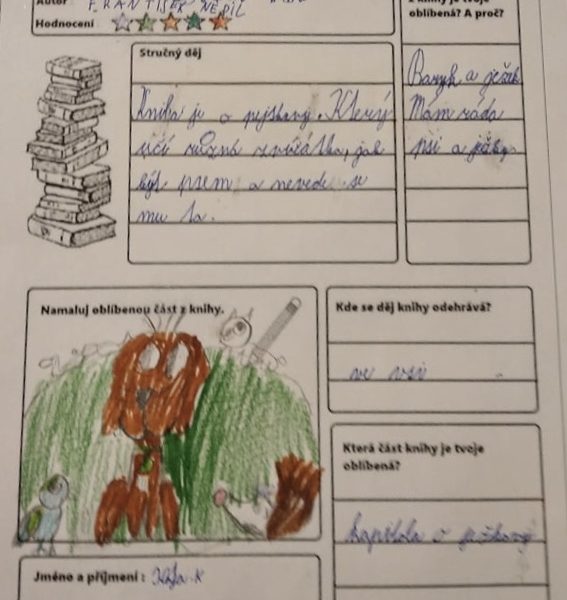 Autor FRANTIŠEK NEPIL
Hodnocení
Stručný děj
Kniha je o pejskovy. Který
učí různá zvířátka, jak
být psem a nevede se
mu to.
z knihy je tvoje
oblíbená? A proč?
Baryk a ježek
Mám ráda
psi a ježky.
Namaluj oblíbenou část z knihy.
Kde se děj knihy odehrává?
ve vsi
Která část knihy je tvoje
oblíbená?
kapitola o ježkovy
Jméno a příjmení :